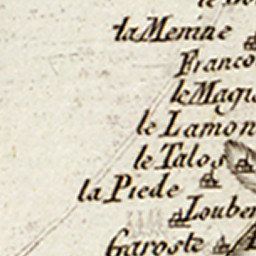 la Menine
Franco
le Magu
le Lamon
le Talos
la Piede
Louber
Garoste